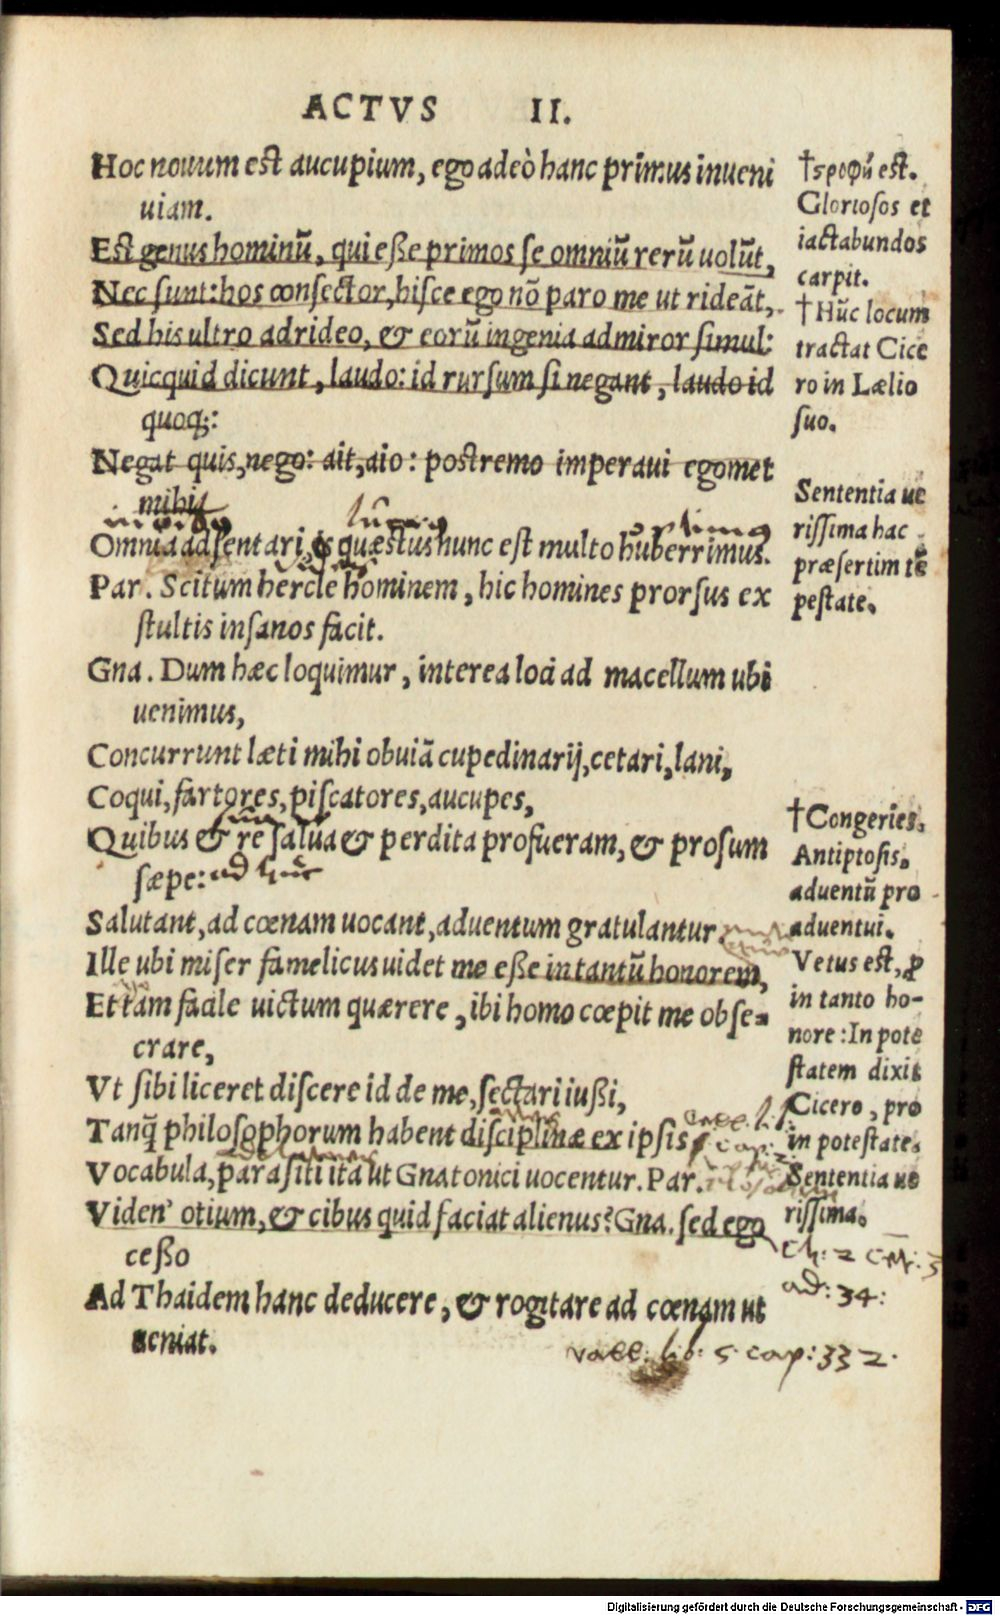 ACTVS II.
Hoc nouum est aucupium, ego adeò hanc primus inueni
uiam.
Est genus hominū, qui eße primos se omniū rerū uolūt,
Nec sunt: hos consector, hisce ego nō paro me ut rideāt,
Sed his ultro adrideo, & eorū ingenia admiror simul:
Quicquid dicunt, laudo: id rursum si negant, laudo id
quoq;:
Negat quis, nego: ait, aio: postremo imperaui egomet
mihi
Omnia adsentari, is quæstus nunc est multo huberrimus.
Par. Scitum hercle hominem, hic homines prorsus ex
stultis insanos facit.
Gna. Dum hæc loquimur, interea loci ad macellum ubi
uenimus,
Concurrunt læti mihi obuiā cupedinarij, cetari, lani,
Coqui, fartores, piscatores, aucupes,
Quibus & re salua & perdita profueram, & prosum
sæpe: ad hūc
Salutant, ad cœnam uocant, aduentum gratulantur.
Ille ubi miser famelicus uidet me eße in tantū honorem,
Et tam facile uictum quærere, ibi homo cœpit me obse-
crare,
Vt sibi liceret discere id de me, sectari iußi,
Tanq̄ philosophorum habent disciplinæ ex ipsis
Vocabula, parasiti ita ut Gnatonici uocentur. Par.
Viden' otium, & cibus quid faciat alienus? Gna. sed ego
ceßo
Ad Thaidem hanc deducere, & rogitare ad cœnam ut
ueniat.
† est.
Gloriosos et
iactabundos
carpit.
† Hūc locum
tractat Cice
ro in Lælio
suo.
Sententia ue
rissima hac
præsertim tē
pestate.
† Congeries.
Antiptosis.
aduentū pro
aduentui.
Vetus est, ꝓ
in tanto ho-
nore: In pote
statem dixit
Cicero, pro
in potestate.
Sententia ue
rissima.
ad: 34:
vall: lib: 5 cap: 332.
Digitalisierung gefördert durch die Deutsche Forschungsgemeinschaft - DFG